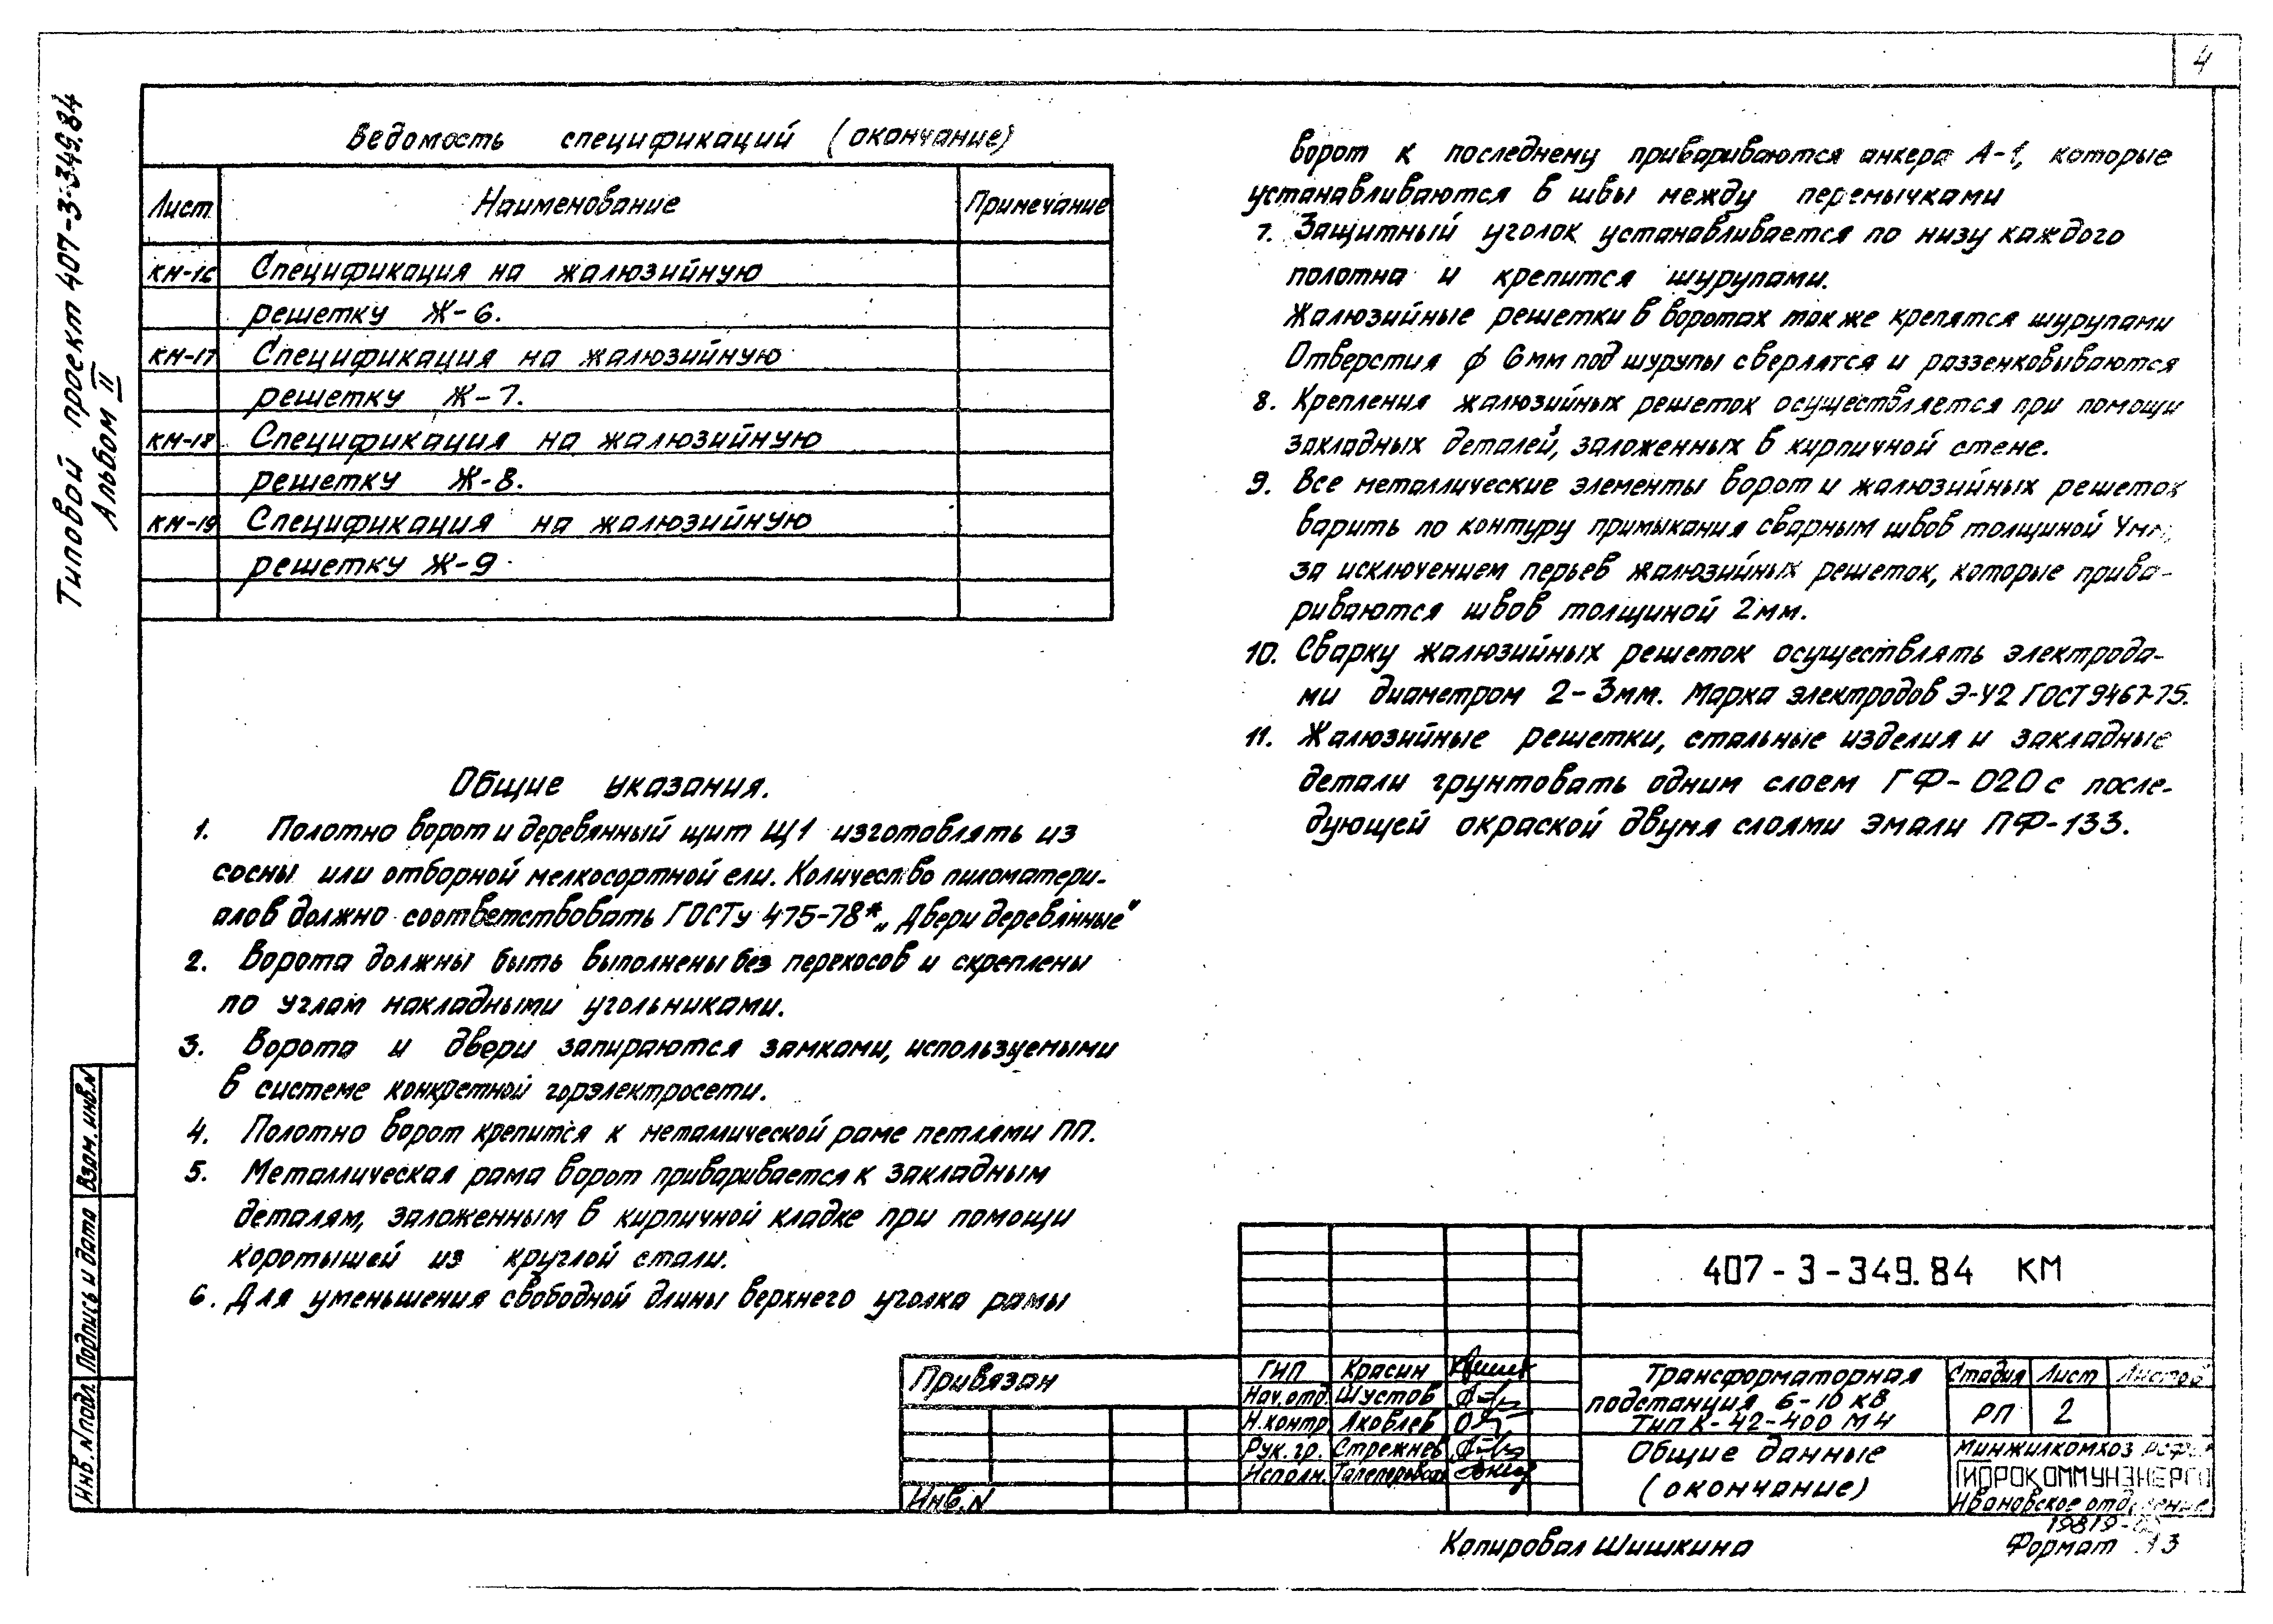 4
Типовой проект 407-3-349.84
Альбом II
Ведомость спецификаций (окончание)
Лист Наименование Примечание
КМ-16 Спецификация на жалюзийную
решетку Ж-6.
КМ-17 Спецификация на жалюзийную
решетку Ж-7.
КМ-18 Спецификация на жалюзийную
решетку Ж-8.
КМ-19 Спецификация на жалюзийную
решетку Ж-9
Общие указания.
1. Полотно ворот и деревянный щит Щ1 изготовлять из
сосны или отборной мелкосортной ели. Количество пиломатери-
алов должно соответствовать ГОСТу 475-78* „Двери деревянные"
2. Ворота должны быть выполнены без перекосов и скреплены
по углам накладными угольниками.
3. Ворота и двери запираются замками, используемыми
в системе конкретной горэлектросети.
4. Полотно ворот крепится к металлической раме петлями ПП.
5. Металлическая рама ворот приваривается к закладным
деталям, заложенным в кирпичной кладке при помощи
коротышей из круглой стали.
6. Для уменьшения свободной длины верхнего уголка рамы
ворот к последнему привариваются анкера А-1, которые
устанавливаются в швы между перемычками
7. Защитный уголок устанавливается по низу каждого
полотна и крепится шурупами.
Жалюзийные решетки в воротах также крепятся шурупами
Отверстия ф 6мм под шурупы сверлятся и раззенковываются
8. Крепления жалюзийных решеток осуществляется при помощи
закладных деталей, заложенных в кирпичной стене.
9. Все металлические элементы ворот и жалюзийных решеток
варить по контуру примыкания сварным швов толщиной 4мм,
за исключением перьев жалюзийных решеток, которые прива-
риваются швов толщиной 2мм.
10. Сварку жалюзийных решеток осуществлять электрода-
ми диаметром 2-3мм. Марка электродов Э-42 ГОСТ 9467-75.
11. Жалюзийные решетки, стальные изделия и закладные
детали грунтовать одним слоем ГФ-020 с после-
дующей окраской двумя слоями эмали ПФ-133.
Инв.N подл. Подпись и дата Взам. инв.N
Привязан
Инв.N
407-3-349.84 КМ
ГИП Красин
Нач.отд. Шустов
Н.контр Яковлев
Рук.гр. Стрежнев
Исполн.
Трансформаторная
подстанция 6-10 кВ
тип К-42-400 М4
Общие данные
(окончание)
Стадия Лист Листов
РП 2
Минжилкомхоз РСФСР
ГИПРОКОММУНЭНЕРГО
Ивановское отделение
19819
Копировал Шишкина
Формат А3